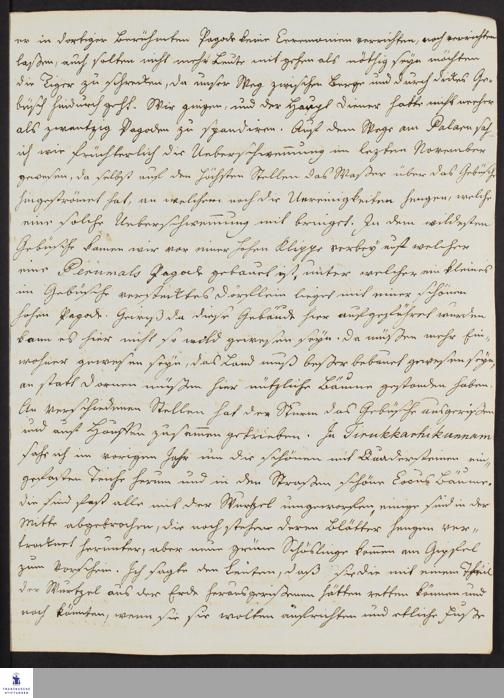 er in dortiger berühmten Pagode keine Ceremonien verrichten, noch verrichten
laßen, auch solten nicht mehr Leute mit gehen als nöthig seyn möchten
die Tiger zu schrecken, da unser Weg zwischen Berge und durch dickes Ge-
büsch hindurch geht. Wir gingen, und der diener hatte nicht mehr
als zwantzig Pagoden zu spendiren. Auf dem Wege am Palaru sah
ich wie fürchterlich die Ueberschwemmung im lezten November
gewesen, da selbst auf den höchsten Stellen das Waßer über das Gebüsche
hingeströmet hat, an welchem noch die Unreinigkeiten hengen, welche
eine solche Ueberschwemmung mit bringet. In dem wildesten
Gebüsche kamen wir vor einer hohen Klippe vorbey auf welcher
eine Perumals Pagode gebauet ist, unter welcher ein kleines
im Gebüsche verstecktes Dörflein lieget mit einer schönen
hohen Pagode. Gewiß da diese Gebäude hier aufgeführet wurden
kann es hier nicht so wild gewesen seyn. da müßen mehr Ein-
wohner gewesen seyn, das Land muß beßer bebauet gewesen seyn,
an statt Dornen müßen hier nützliche Bäume gestanden haben.
An verschiedenen Stellen hat der Sturm das Gebüsche ausgerißen
und auf Hauffen zusammen getrieben. In Tirukkarhikunnam
sahe ich im vorigen Jahr um die schönen mit Quadersteinen ein-
gefasten Teiche herum und in den Straßen schöne Cocus Bäume.
die sind fast alle mit der Wurtzel umgeworfen, einige sind in der
Mitte abgebrochen, die noch stehen deren Blätter hengen ver-
trocknet herunter, aber neue grüne Schößlinge keimen am Gipffel
zum Vorschein. Ich sagte den Leuten, daß sie die mit einem Theil
der Wurtzel aus der Erde herausgerißenen hätten retten können und
noch könten, wenn sie sie wolten aufrichten und etliche Fuße
FRANCKESCHE
STIFTUNGEN